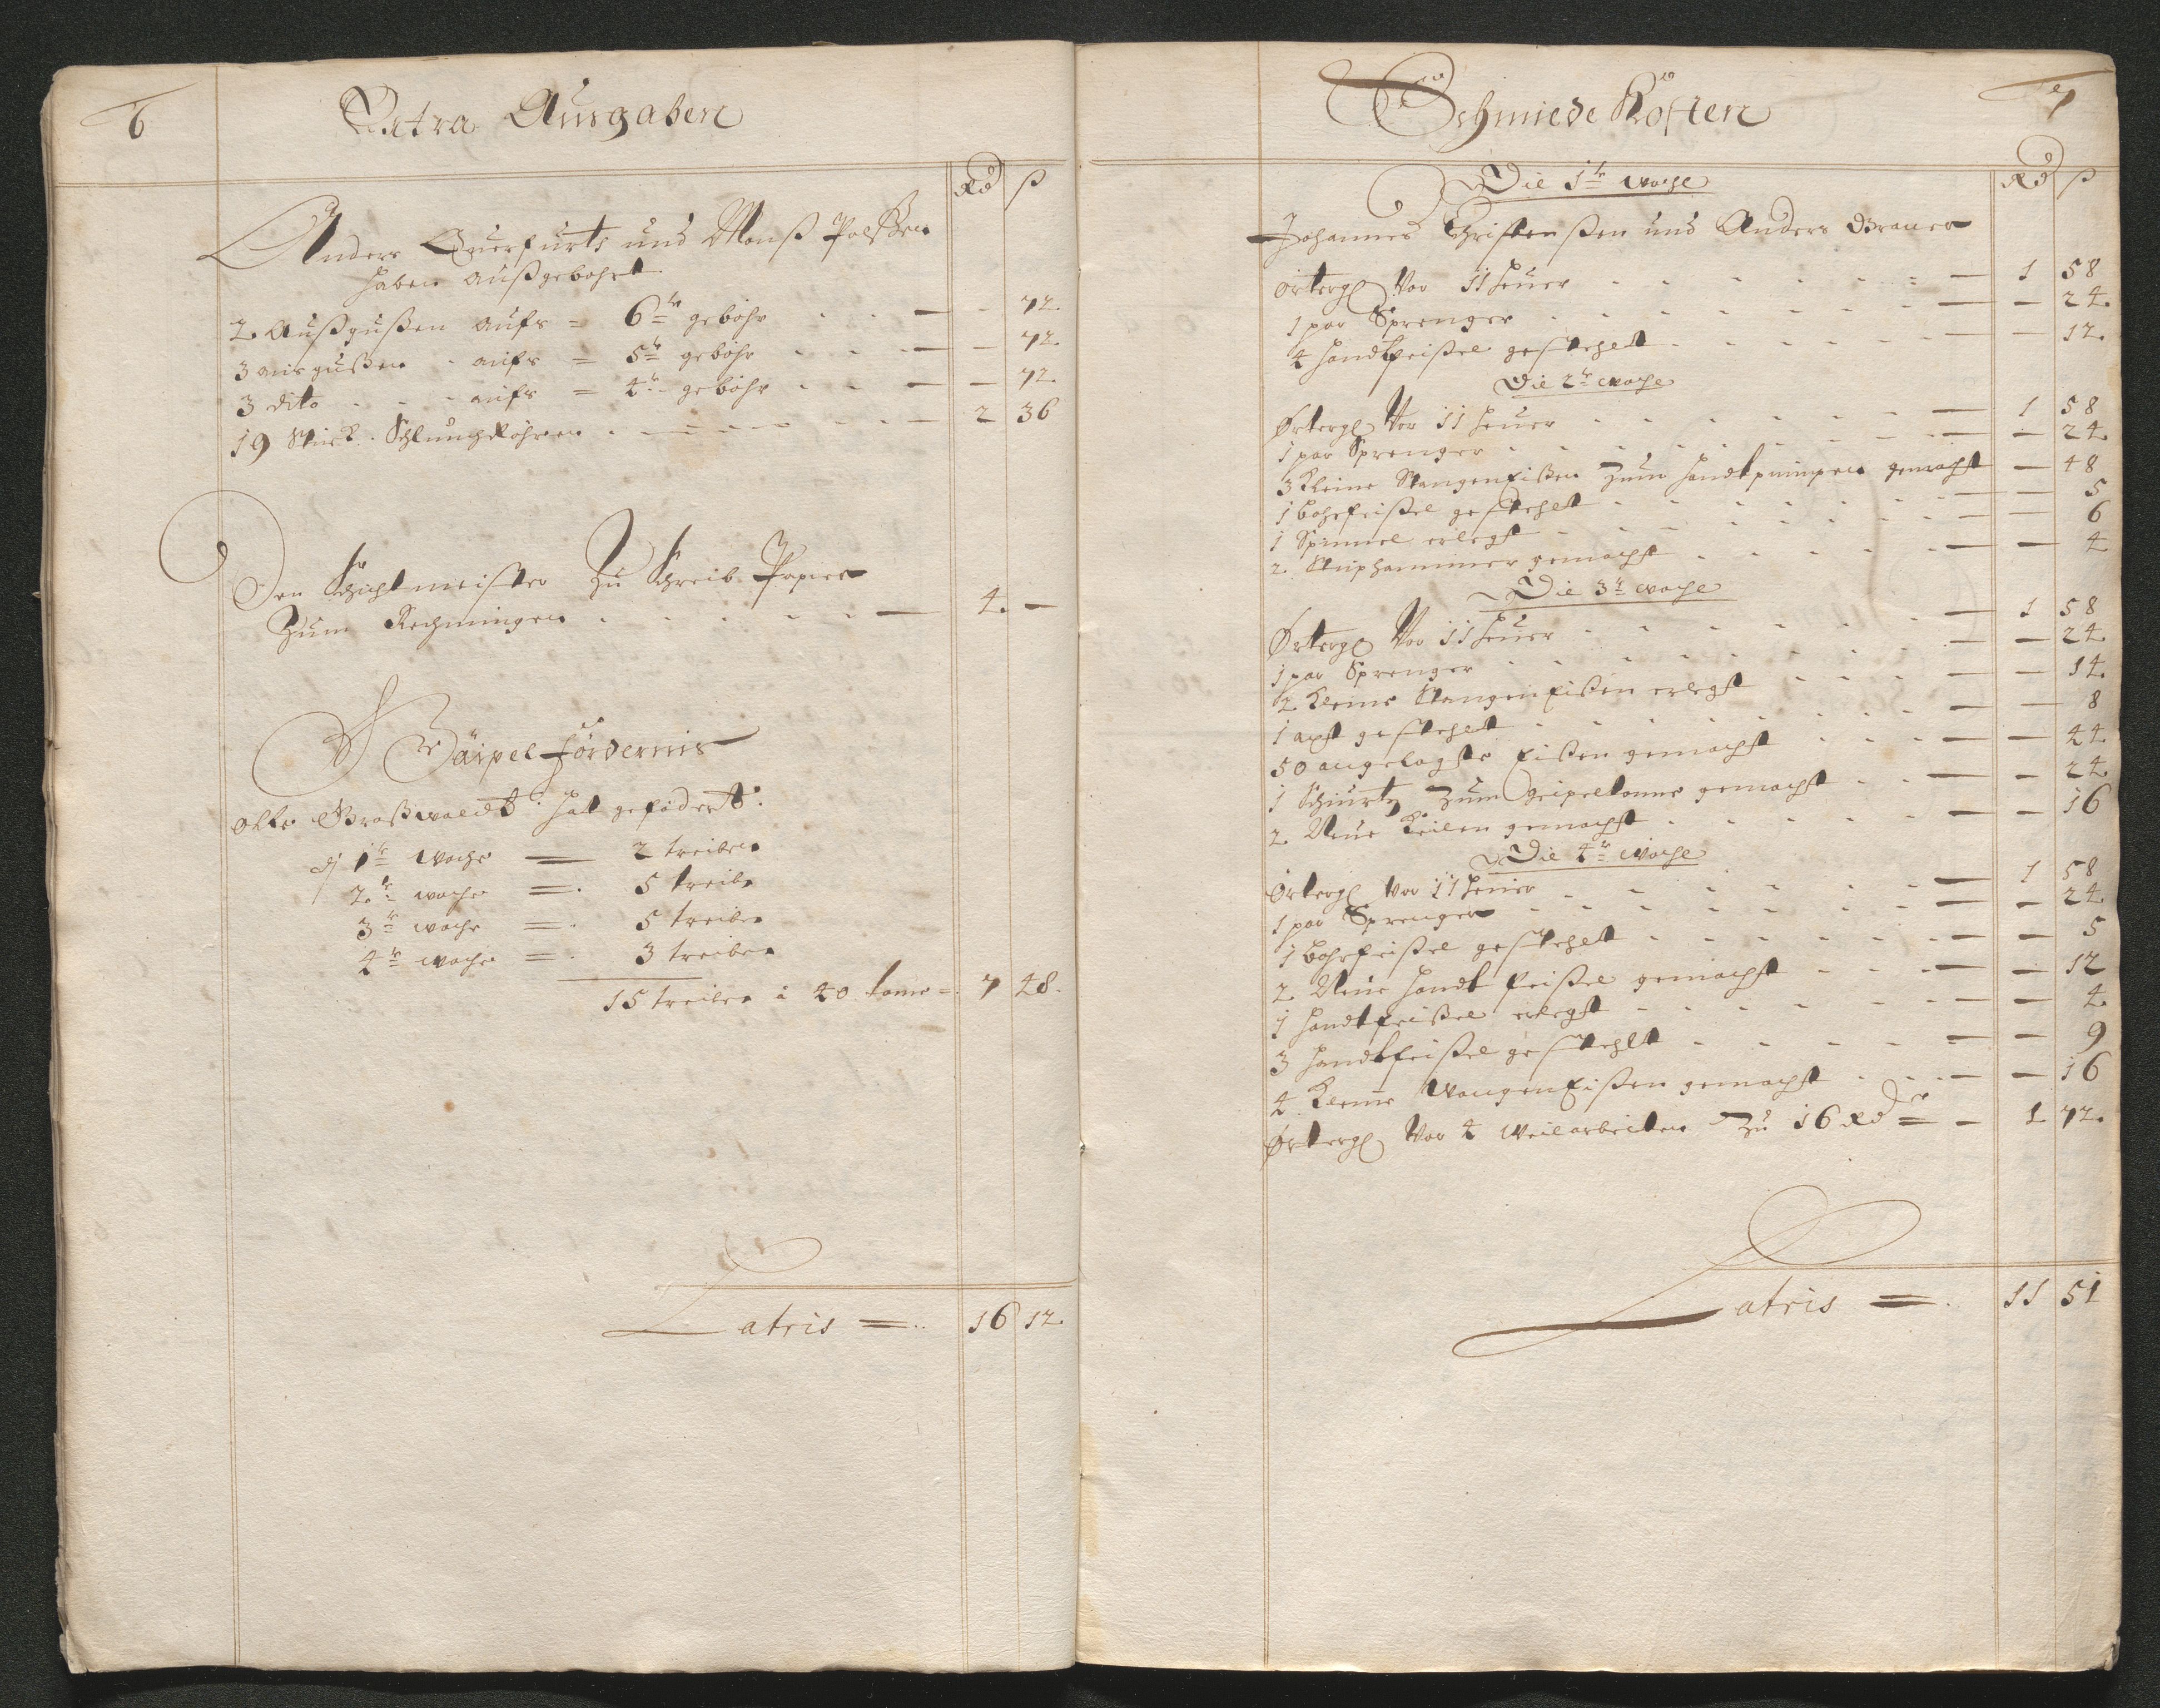 6
Extra Ausgaben
Rd ß
Anders Querfurts und Monß Polßen
haben außgebohrt
2. Außgußen aufs = 6te gebohr - - — - 72.
3 ausgußen - aufs = 5te gebohr - - — - 72.
3 dito - - - aufs = 4te gebohr - - — - 72.
19 Stück Schlungröhren - - - - — 2 36
Den Schichtmeister Zu Schreib Papier
Zum Rechnungen - - - - — 4. —
Gäipel fördernis
Olle Graßwaldt hatt gefödert:
dj 1te Woche — 2 treiben
2te woche =. 5 treibe
3te woche =. 5 treiben
4te woche =. 3 treiben
15 treiben â 40 tonne =. 7 48.
Latris =.. 16 12.
7
Schmiede Kosten
Rd ß
Die 1te woche
Johannes Christenßen und Anders Brauer
örtergl Vor 11 heuer - - - - — 1 58
1 par Sprenger - - - - — - 24.
4 handtfeißel gestehelt - - - - — - 12.
Die 2te woche
Örtergl Vor 11 heuer - - - - — 1 58
1 par Sprenger - - - - — - 24.
3 Kleine Stangeneißen Zum handtpumpen gemacht — 48
1 bohrfeißel gestehelt - - - - — — 5
1 Spinnel erlegt - - - - — — 6
2. hammer gemacht - - - - — — 4
Die 3te woche
Örtergl Vor 11 heuer - - - - — 1 58
1 par Sprenger - - - - — — 24.
2. Kleine Stangeneißen erlegt - - - — — 14.
1 axt gestehelt - - - - — — 8
50 angelagte Eißen gemacht - - - — — 44.
1 Schurtz Zum Geipeltonne gemacht - - — - 24.
2. Neue Keilen gemacht - - - - — — 16
Die 4te woche
Örtergl Vor 11 heuer - - - - — 1 58
1 par Sprenger - - - - — - 24.
1 bohrfeißel gestehelt - - - - — — 5
2. Neue handt feißel gemacht - - - — - 12
1 handtfeißel erlegt - - - - — — 4.
3 handtfeißel gestehlt - - - - — — 9
4. Kleine Wangeneißen gemacht - - - — — 16
Örtergl Vor 4 Weilarbeiten Zu 16 Rd = - 1 72.
Latris =. 11 51